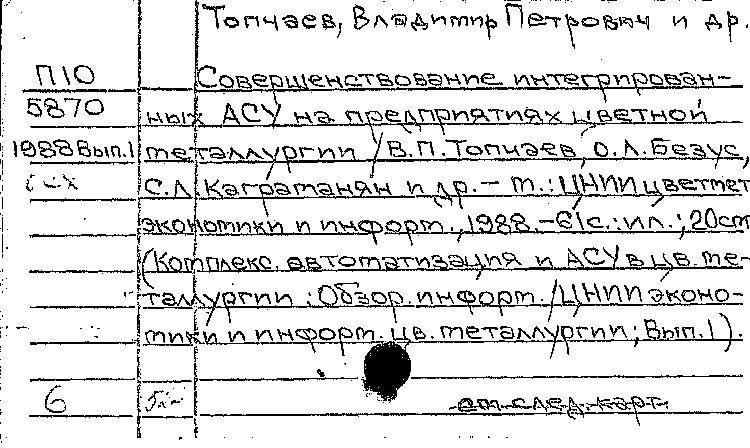 Топчаев, Владимир Петрович и др.
П10 Совершенствование интегрирован-
5870 ных АСУ на предприятиях цветной
1988 Вып.1 металлургии / В.П. Топчаев, О.Л. Безус,
С.Л. Каграманян и др. – М.: ЦНИИ цветмет
экономики и информ., 1988. – 61 с.: ил.; 20 см
(Комплекс. автоматизация и АСУ в цв. ме-
таллургии: Обзор. информ. / ЦНИИ эконо-
мики и информ. цв. металлургии; Вып. 1).
6 см. след. карт.